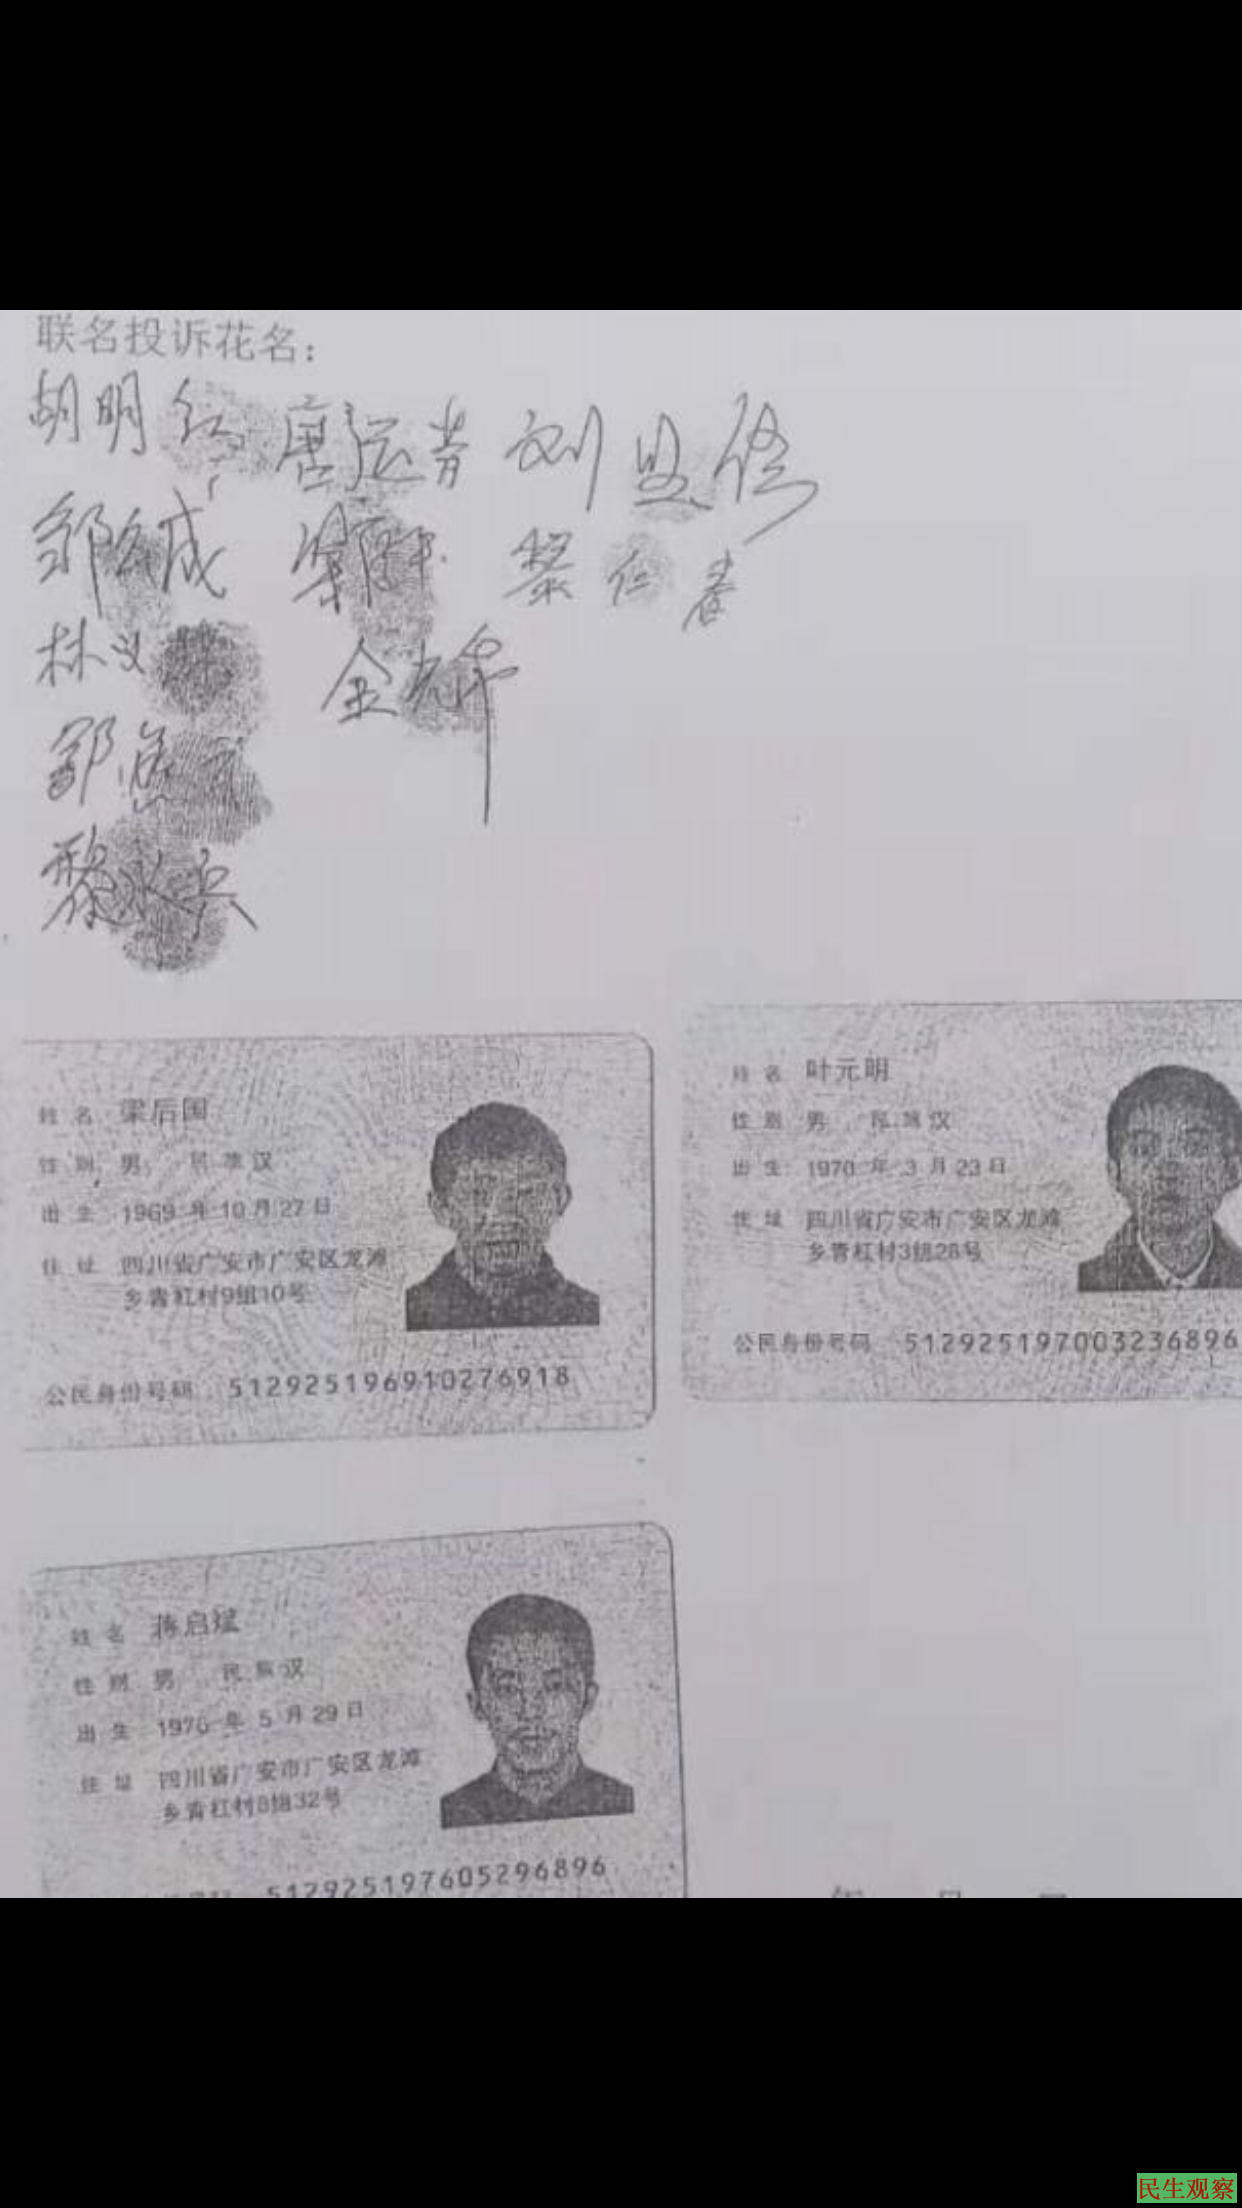 联名投诉花名：
胡明红 唐运芳 刘
邹 成 黎
林义
金
邹
黎永兵
姓名 梁后国
性别 男 民族 汉
出生 1969年10月27日
住址 四川省广安市广安区龙滩
乡青杠村9组10号
公民身份号码 512925196910276918
姓名 叶元明
性别 男 民族 汉
出生 1970年3月23日
住址 四川省广安市广安区龙滩
乡青杠村3组28号
公民身份号码 512925197003236896
姓名 蒋启斌
性别 男 民族 汉
出生 1976年5月29日
住址 四川省广安市广安区龙滩
乡青杠村8组32号
512925197605296896
民生观察